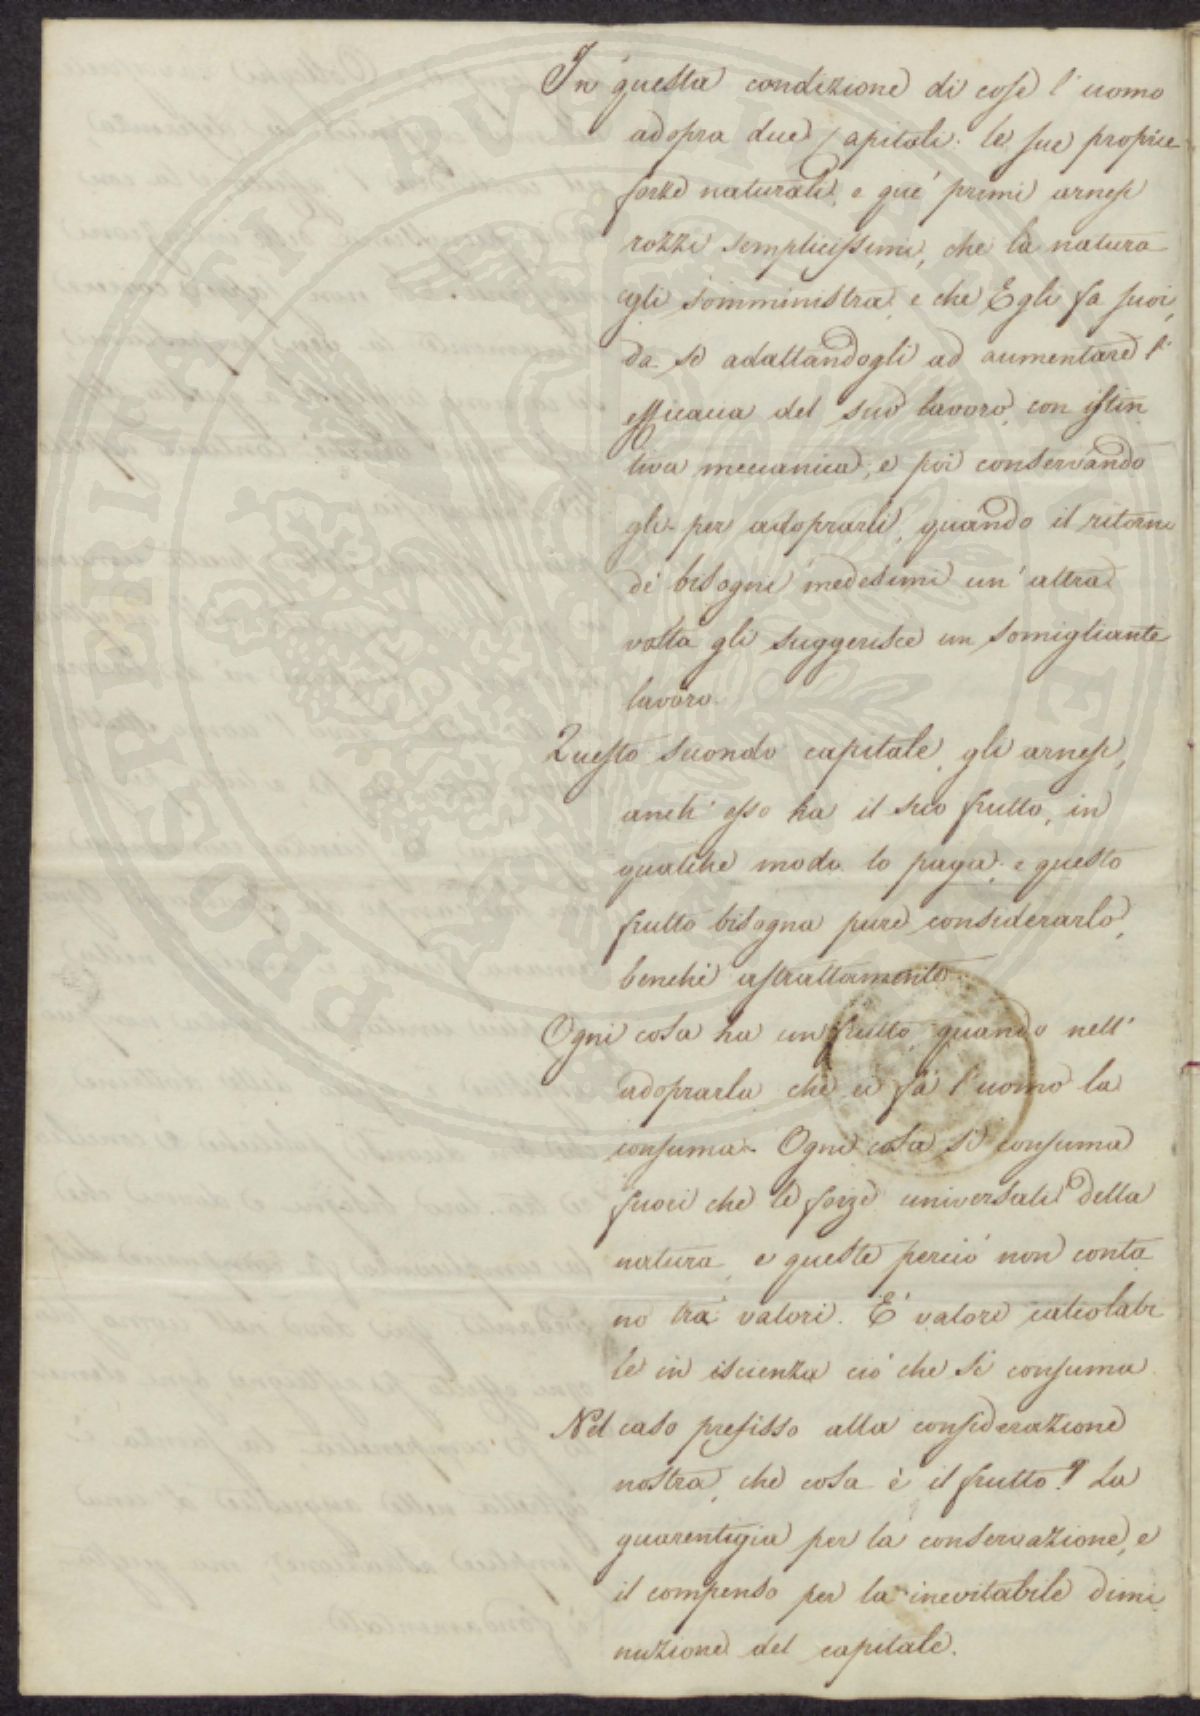 In questa condizione di cose l'uomo
adopra due Capitali: le sue proprie
forze naturali, e que' primi arnesi
rozzi semplicissimi, che la natura
gli somministra, e che Egli fa suoi,
da se adattandogli ad aumentare l'
efficacia del suo lavoro, con istin
tiva meccanica, e poi conservando
gli per adoprarli, quando il ritorno
de' bisogni medesimi un' altra
volta gli suggerisce un somigliante
lavoro.
Questo secondo capitale, gli arnesi,
anch' esso ha il suo frutto, in
qualche modo lo paga, e questo
frutto bisogna pure considerarlo,
benchè astrattamente.
Ogni cosa ha un frutto, quando nell'
adoprarla che ci fà l'uomo la
consuma. Ogni cosa si consuma
fuori che le forze universali della
natura, e queste perciò non conta
no trà valori. E' valore calcolabi
le in iscienza ciò che si consuma.
Nel caso prefisso alla considerazione
nostra, che cosa è il frutto? La
guarentigia per la conservazione, e
il compenso per la inevitabile dimi
nuzione del capitale.
PROSPERITATI PUBLICAE AUGENDAE